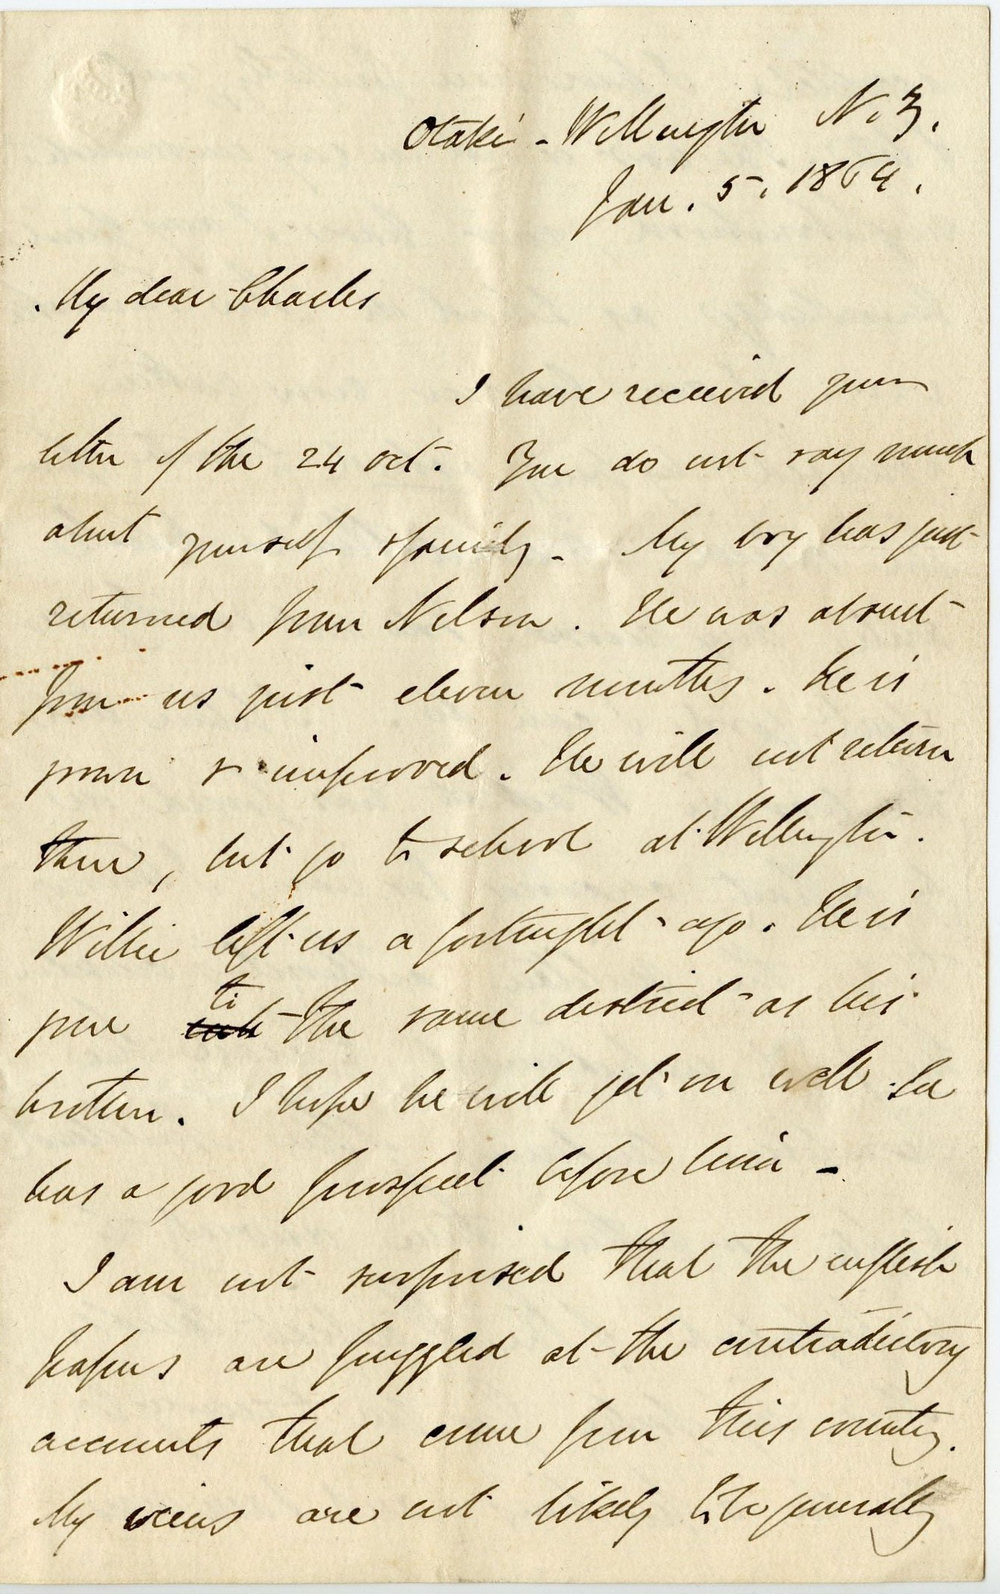 Otaki - Wellington N.Z.
Jan. 5. 1864.
My dear Charles
I have received your
letter of the 24 Oct. You do not say much
about yourself & family - My boy has just
returned from Nelson. He was absent
from us just eleven months. He is
grown & improved. He will not return
there, but go to school at Wellington.
Willie left us a fortnight ago. He is
gone to the same district as his
brother. I hope he will get on well. He
has a good prospect before him -
I am not surprised that the english
papers are puzzled at the contradictory
accounts that come from this country.
My views are not likely to be generally